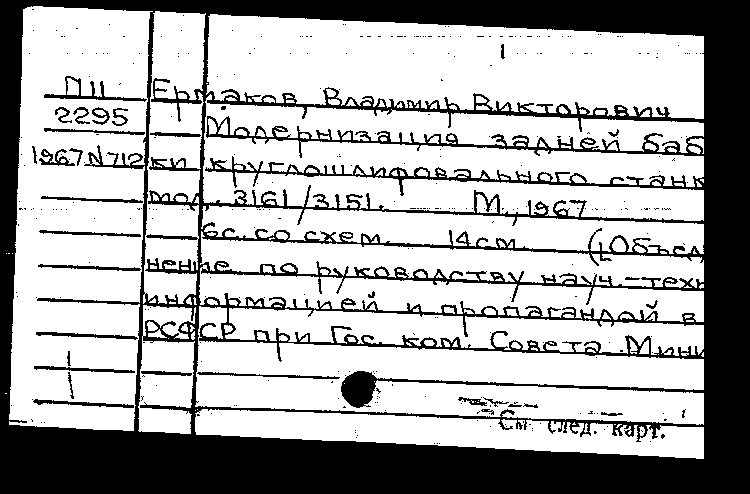 1
П11 Ермаков, Владимир Викторович
2295 Модернизация задней баб
1967N712 ки круглошлифовального станк
мод. 3161/3151. М., 1967
6с. со схем. 14см. (Объед
нение по руководству науч.-техн
информацией и пропагандой в
РСФСР при Гос. ком. Совета Мини
См след. карт.